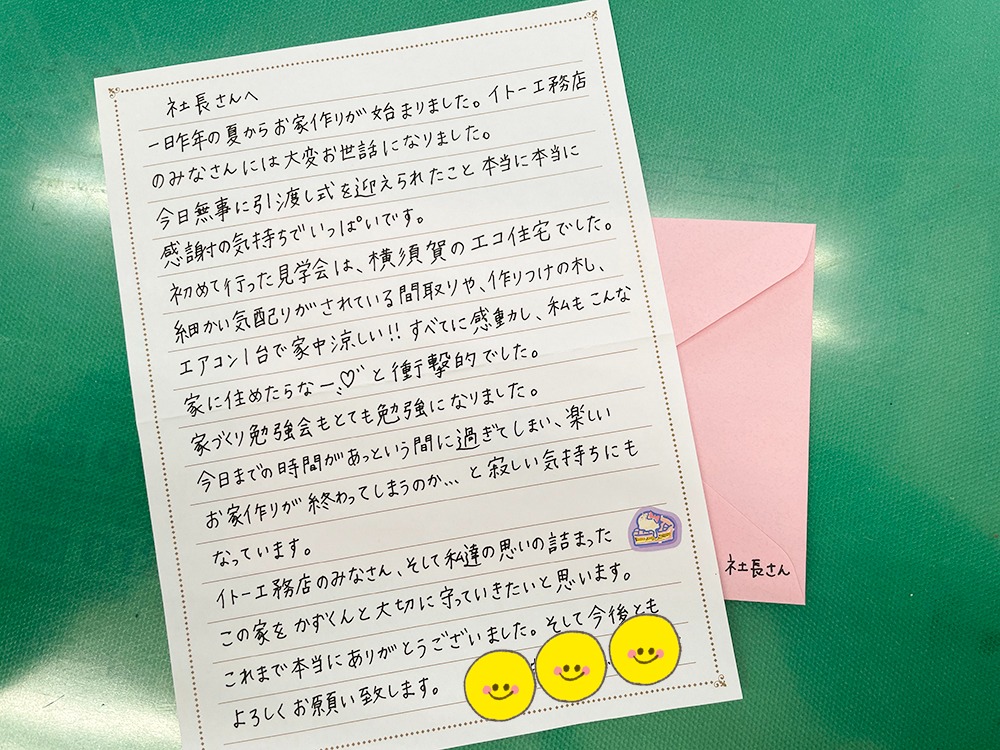 社長さんへ
一昨年の夏からお家作りが始まりました。イトー工務店
のみなさんには大変お世話になりました。
今日無事に引渡し式を迎えられたこと本当に本当に
感謝の気持ちでいっぱいです。
初めて行った見学会は、横須賀のエコ住宅でした。
細かい気配りがされている間取りや、作りつけの札、
エアコン1台で家中涼しい!!すべてに感動し、私もこんな
家に住めたらなー♡と衝撃的でした。
家づくり勉強会もとても勉強になりました。
今日までの時間があっという間に過ぎてしまい、楽しい
お家作りが終わってしまうのか…と寂しい気持ちにも
なっています。
イトー工務店のみなさん、そして私達の思いの詰まった
この家をかずくんと大切に守っていきたいと思います。
これまで本当にありがとうございました。そして今後とも
よろしくお願い致します。
社長さん